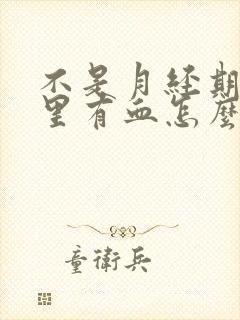 不是月经期
里有血怎麼
童衛兵